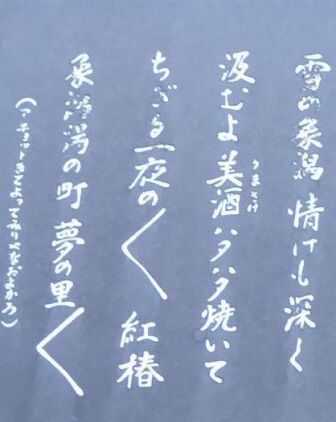 雪の象潟 情けも深く
汲むよ美酒ハタハタ焼いて
うまさけ
ちぎる一夜の〱 紅椿
象潟の町 夢の里〱
(アチョットきてよってみりゃなおよかろ)